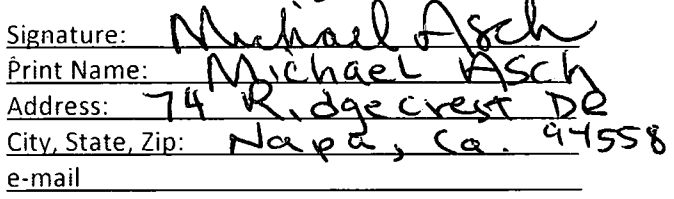 Signature: Michael Asch
Print Name: Michael Asch
Address: 74 Ridgecrest DR
City, State, Zip: Napa, Ca. 94558
e-mail